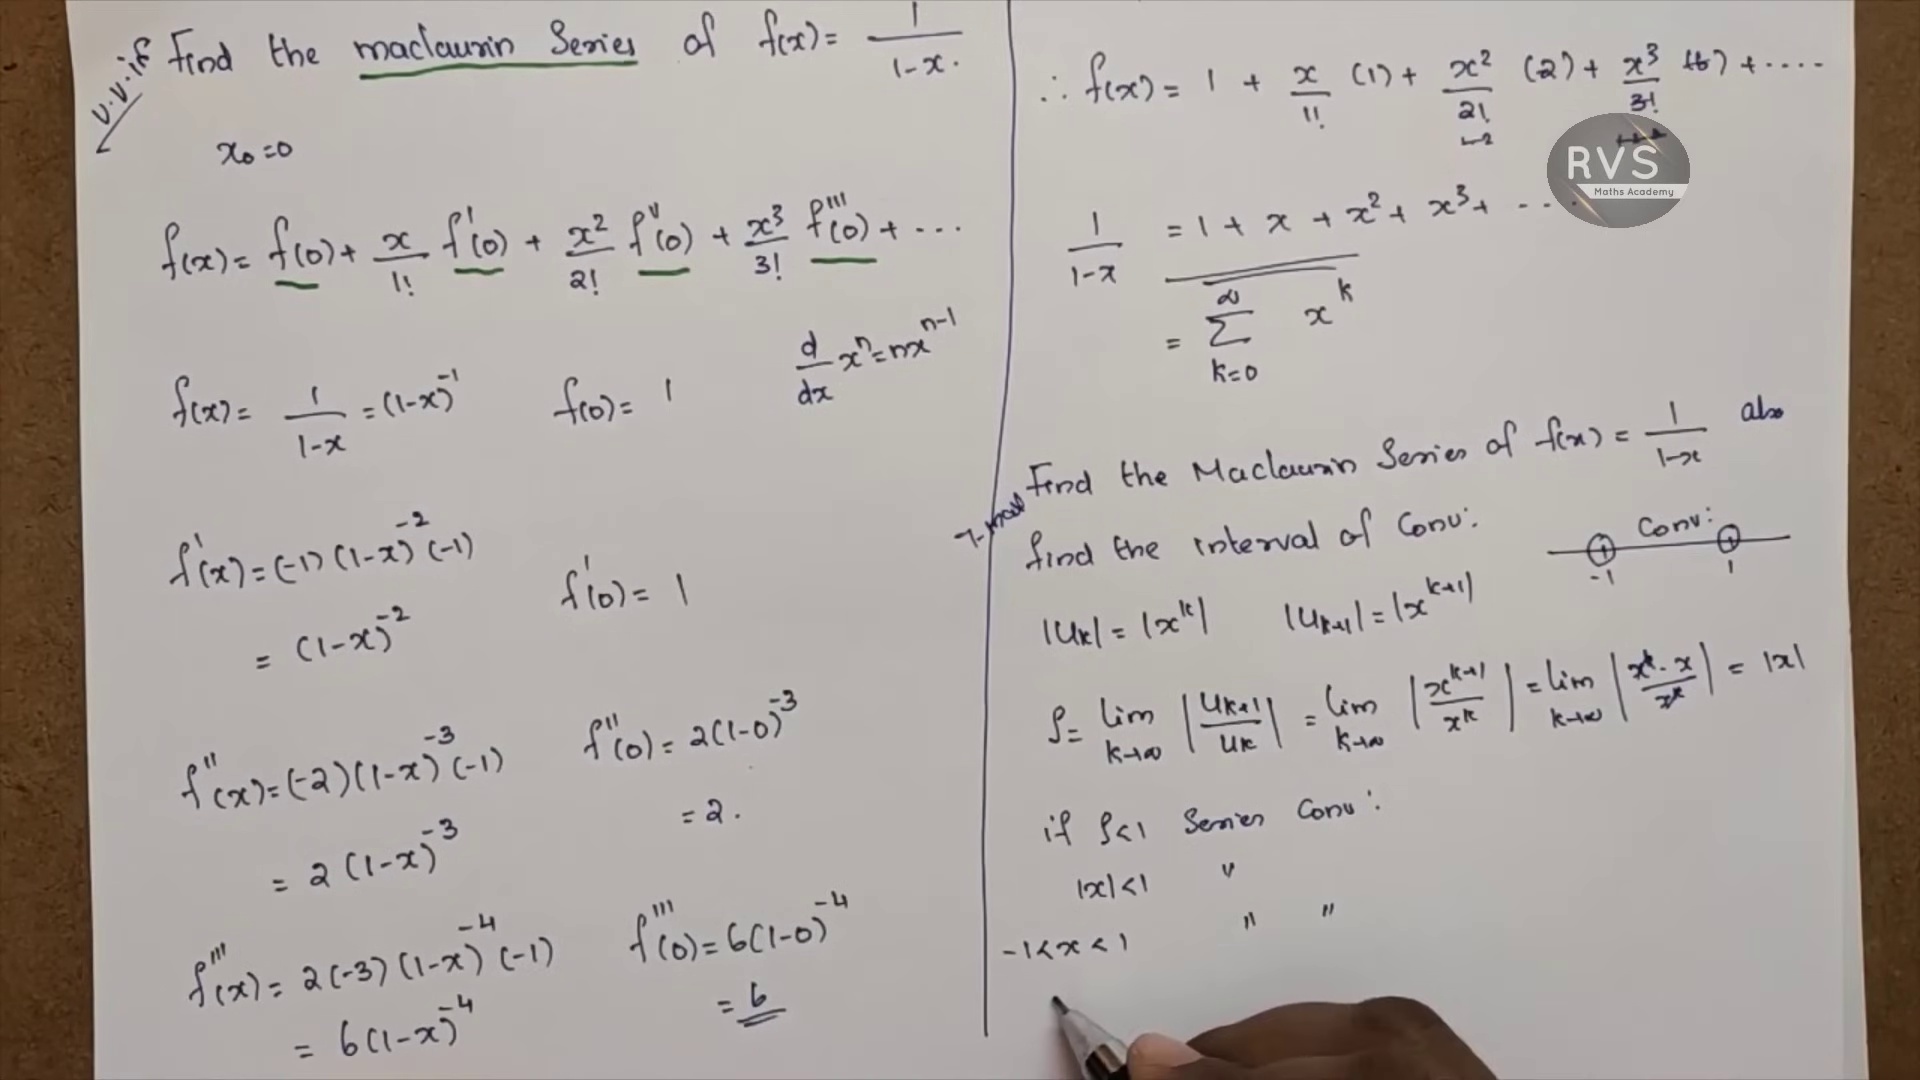 v.v.if Find the maclaurin Series of f(x) = 1/1-x.
x₀=0
f(x) = f(0) + x/1! f'(0) + x²/2! f''(0) + x³/3! f'''(0) + ...
d/dx xⁿ = nxⁿ⁻¹
f(x) = 1/1-x = (1-x)⁻¹ f(0) = 1
f'(x) = (-1)(1-x)⁻²(-1)
= (1-x)⁻² f'(0) = 1
f''(x) = (-2)(1-x)⁻³(-1) f''(0) = 2(1-0)⁻³
= 2(1-x)⁻³ = 2.
f'''(x) = 2(-3)(1-x)⁻⁴(-1) f'''(0) = 6(1-0)⁻⁴
= 6(1-x)⁻⁴ = 6
∴ f(x) = 1 + x/1! (1) + x²/2! (2) + x³/3! (6) + ....
RVS
Maths Academy
1/1-x = 1 + x + x² + x³ + ...
= ∑ k=0 ∞ xᵏ
Find the Maclaurin Series of f(x) = 1/1-x also
find the interval of Conv:
Conv:
-1 1
|uₖ| = |xᵏ| |uₖ₊₁| = |xᵏ⁺¹|
ρ = lim k→∞ |uₖ₊₁/uₖ| = lim k→∞ |xᵏ⁺¹/xᵏ| = lim k→∞ |xᵏ·x/xᵏ| = |x|
if ρ<1 Series Conv:
|x|<1 "
-1<x<1 " "